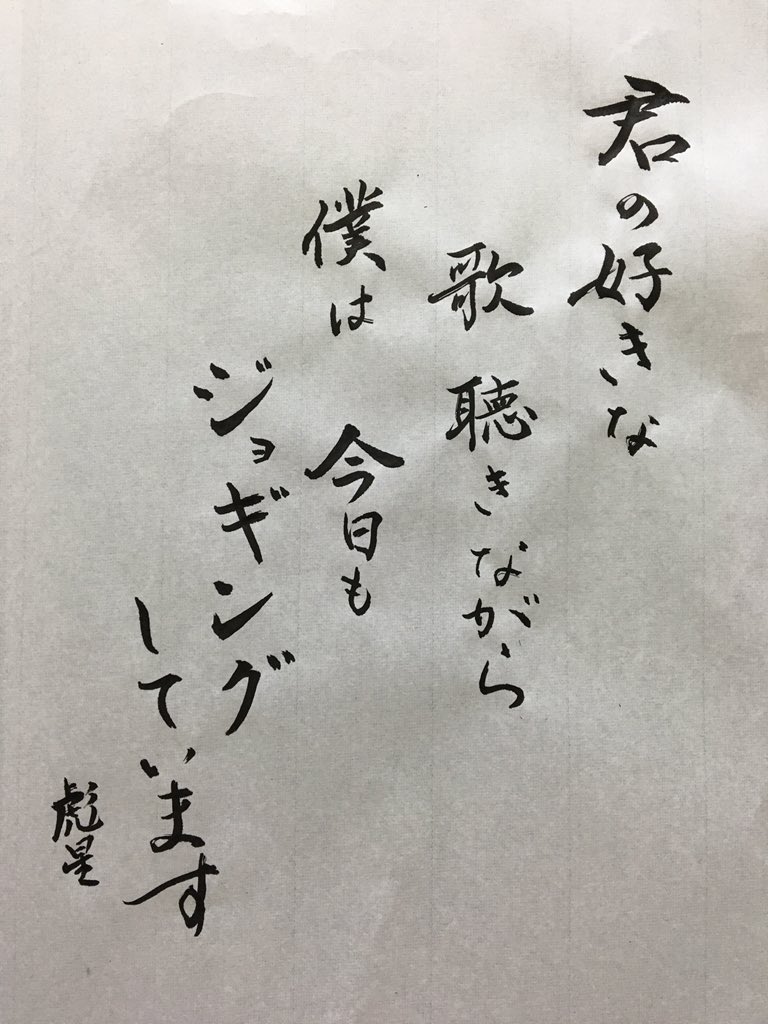 君の好きな
歌 聴きながら
僕は 今日も
ジョギング
しています
彪星